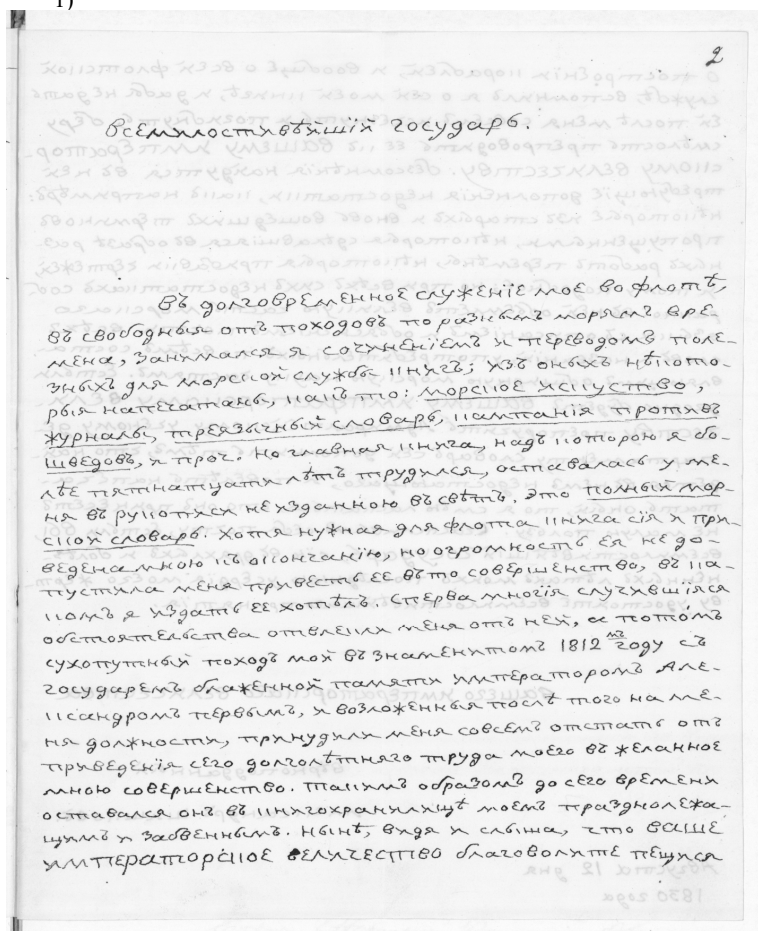 1)
2
Всемилостивѣйшій государь.
Въ долговременное служеніе мое во флотѣ,
въ свободныя отъ походовъ по разнымъ морямъ вре-
мена, занимался я сочиненіемъ и переводомъ поле-
зныхъ для морской службы книгъ; изъ оныхъ нѣкото-
рыя напечатаны, какъ то: морское искуство,
журналы, треязычный словарь, кампанія противъ
шведовъ, и проч: но главная книга, надъ которою я бо-
лѣе пятнатцати лѣтъ трудился, оставалась у ме-
ня въ рукописи неизданною въ свѣтъ. Это полный мор-
ской словарь. Хотя нужная для флота книга сія и при-
ведена мною къ окончанію, но огромность ея не до-
пустила меня привесть ее въ то совершенство, въ ка-
комъ я издать ее хотѣлъ. Сперва многія случившіяся
обстоятельства отвлекли меня отъ ней, а потомъ
сухопутный походъ мой въ знаменитомъ 1812мъ году съ
государемъ блаженной памяти императоромъ Але-
ксандромъ первымъ, и возложенныя послѣ того на ме-
ня должности, принудили меня совсемъ отстать отъ
приведенія сего долголѣтняго труда моего въ желанное
мною совершенство. Такимъ образомъ до сего времени
оставался онъ въ книгохранилищѣ моемъ празднолежа-
щимъ и забвеннымъ. Нынѣ, видя и слыша, что ваше
императорское величество благоволите пещися